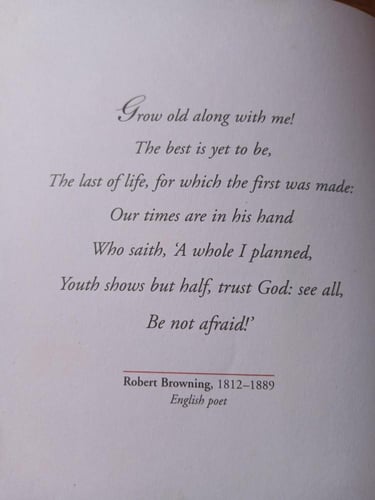 Grow old along with me!
The best is yet to be,
The last of life, for which the first was made:
Our times are in his hand
Who saith, ‘A whole I planned,
Youth shows but half, trust God: see all,
Be not afraid!’
Robert Browning, 1812–1889
English poet